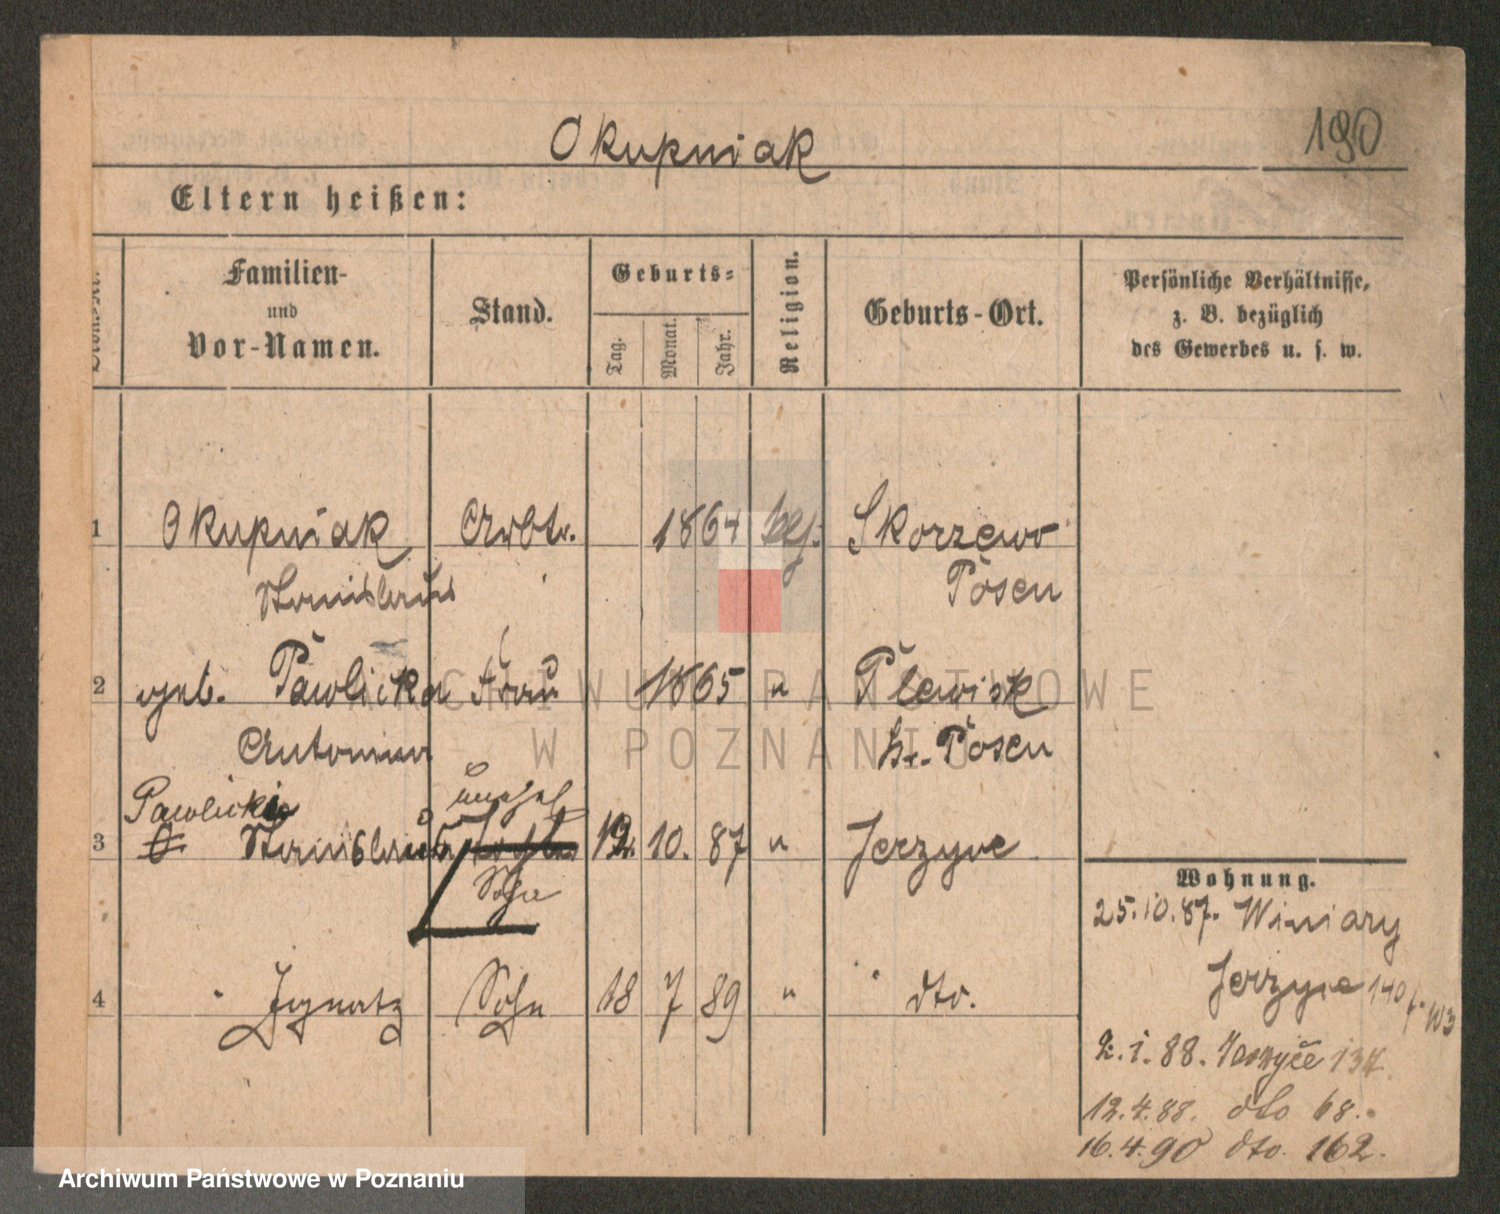 Okupniak
190
Eltern heißen:
Familien-
und
Vor-Namen.
Stand.
Geburts-
Tag.
Monat.
Jahr.
Religion.
Geburts-Ort.
Persönliche Verhältnisse,
z. B. bezüglich
des Gewerbes u. s. w.
1 Okupniak Arbtr. 1864 Skorzewo
Stanislaus Posen
2 geb. Pawlicka Frau 1865 " Plewisk
Antonina b. Posen
Pawlicki unehel
3 Stanislaus 12. 10. 87 " Jerzyce
Sohn
4 Ignatz Sohn 18 7 89 " dto.
Wohnung.
25.10.87. Winiary
Jerzyce 140
2.1.88. Jerzyce 137
12.4.88. dto 68.
16.4.90 dto. 162.
ARCHIWUM PAŃSTWOWE
W POZNANIU
Archiwum Państwowe w Poznaniu